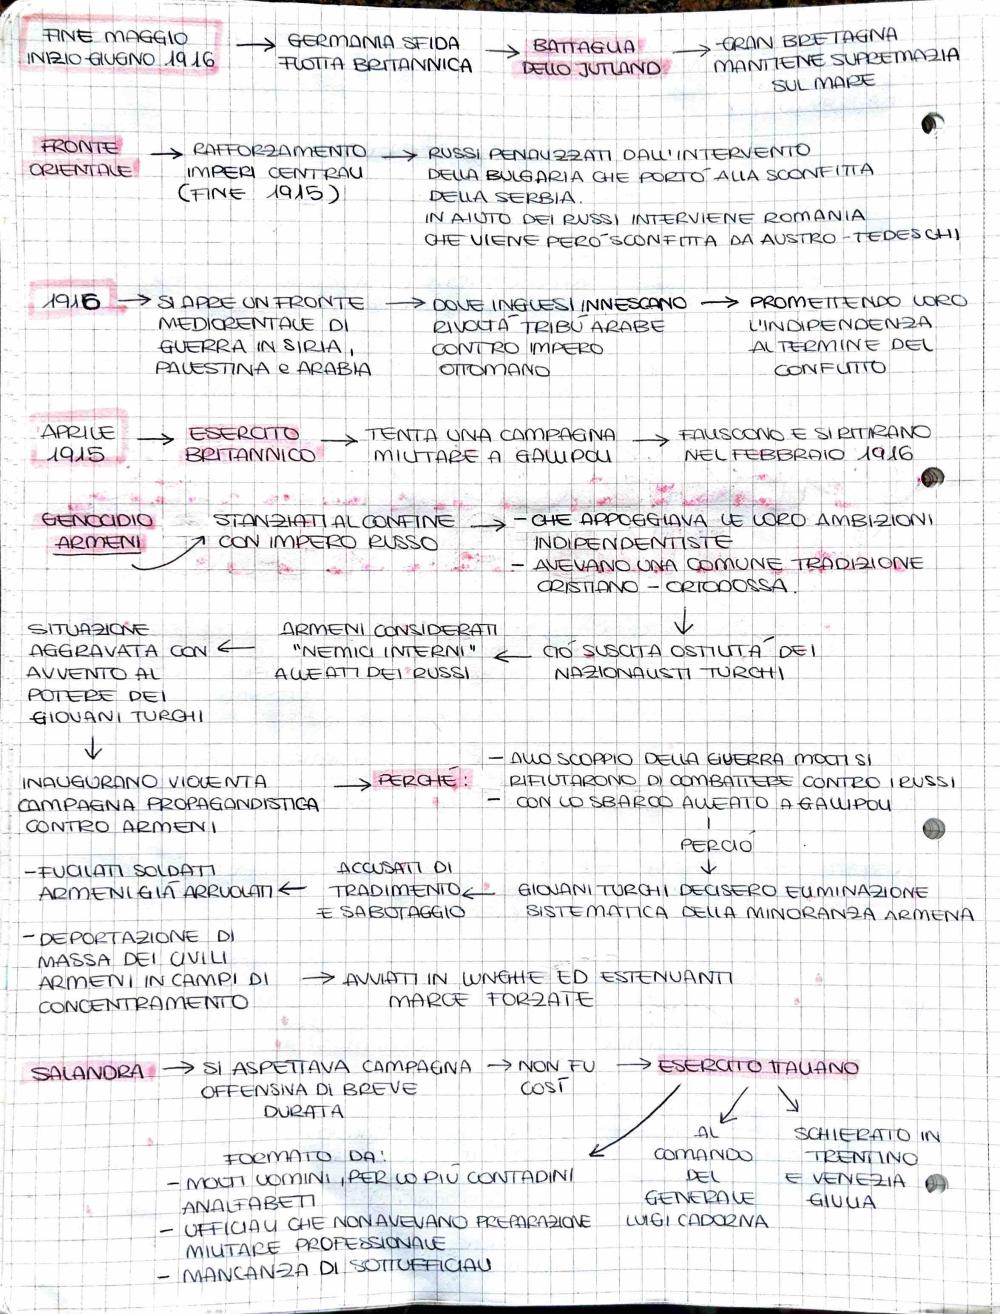 FINE MAGGIO
INIZIO GIUGNO 1916
→ GERMANIA SFIDA
FLOTTA BRITANNICA
→ BATTAGLIA
DELLO JUTLAND
→ GRAN BRETAGNA
MANTIENE SUPREMAZIA
SUL MARE
FRONTE
ORIENTALE
→ RAFFORZAMENTO
IMPERI CENTRALI
(FINE 1915)
→ RUSSI PENALIZZATI DALL'INTERVENTO
DELLA BULGARIA CHE PORTÒ ALLA SCONFITTA
DELLA SERBIA.
IN AIUTO DEI RUSSI INTERVIENE ROMANIA
CHE VIENE PERÒ SCONFITTA DA AUSTRO-TEDESCHI
1916
→ SI APRE UN FRONTE
MEDIORENTALE DI
GUERRA IN SIRIA,
PALESTINA e ARABIA
→ DOVE INGLESI INNESCANO
RIVOLTA TRIBÙ ARABE
CONTRO IMPERO
OTTOMANO
→ PROMETTENDO LORO
L'INDIPENDENZA
AL TERMINE DEL
CONFLITTO
APRILE
1915
→ ESERCITO
BRITANNICO
→ TENTA UNA CAMPAGNA
MILITARE A GALLIPOLI
→ FALISCONO E SI RITIRANO
NEL FEBBRAIO 1916
GENOCIDIO
ARMENI
STANZIATI AL CONFINE
CON IMPERO RUSSO
→ - CHE APPOGGIAVA LE LORO AMBIZIONI
INDIPENDENTISTE
- AVEVANO UNA COMUNE TRADIZIONE
CRISTIANO - ORTODOSSA.
↓
CIÒ SUSCITA OSTILITÀ DEI
NAZIONALISTI TURCHI
← ARMENI CONSIDERATI
"NEMICI INTERNI"
ALLEATI DEI RUSSI
← SITUAZIONE
AGGRAVATA CON
AVVENTO AL
POTERE DEI
GIOVANI TURCHI
↓
INAUGURANO VIOLENTA
CAMPAGNA PROPAGANDISTICA
CONTRO ARMENI
→ PERCHÉ:
- ALLO SCOPPIO DELLA GUERRA MOLTI SI
RIFIUTARONO DI COMBATTERE CONTRO I RUSSI
- CON LO SBARCO ALLEATO A GALLIPOLI
PERCIÒ
↓
GIOVANI TURCHI DECISERO ELIMINAZIONE
SISTEMATICA DELLA MINORANZA ARMENA
← ACCUSATI DI
TRADIMENTO
E SABOTAGGIO
← - FUCILATI SOLDATI
ARMENI GIÀ ARRUOLATI
- DEPORTAZIONE DI
MASSA DEI CIVILI
ARMENI IN CAMPI DI
CONCENTRAMENTO
→ AVVIATI IN LUNGHE ED ESTENUANTI
MARCE FORZATE
SALANDRA
→ SI ASPETTAVA CAMPAGNA
OFFENSIVA DI BREVE
DURATA
→ NON FU
COSÌ
→ ESERCITO ITALIANO
FORMATO DA:
- MOLTI UOMINI, PER LO PIÙ CONTADINI
ANALFABETI
- UFFICIALI CHE NON AVEVANO PREPARAZIONE
MILITARE PROFESSIONALE
- MANCANZA DI SOTTUFFICIALI
AL
COMANDO
DEL
GENERALE
LUIGI CADORNA
SCHIERATO IN
TRENTINO
E VENEZIA
GIULIA